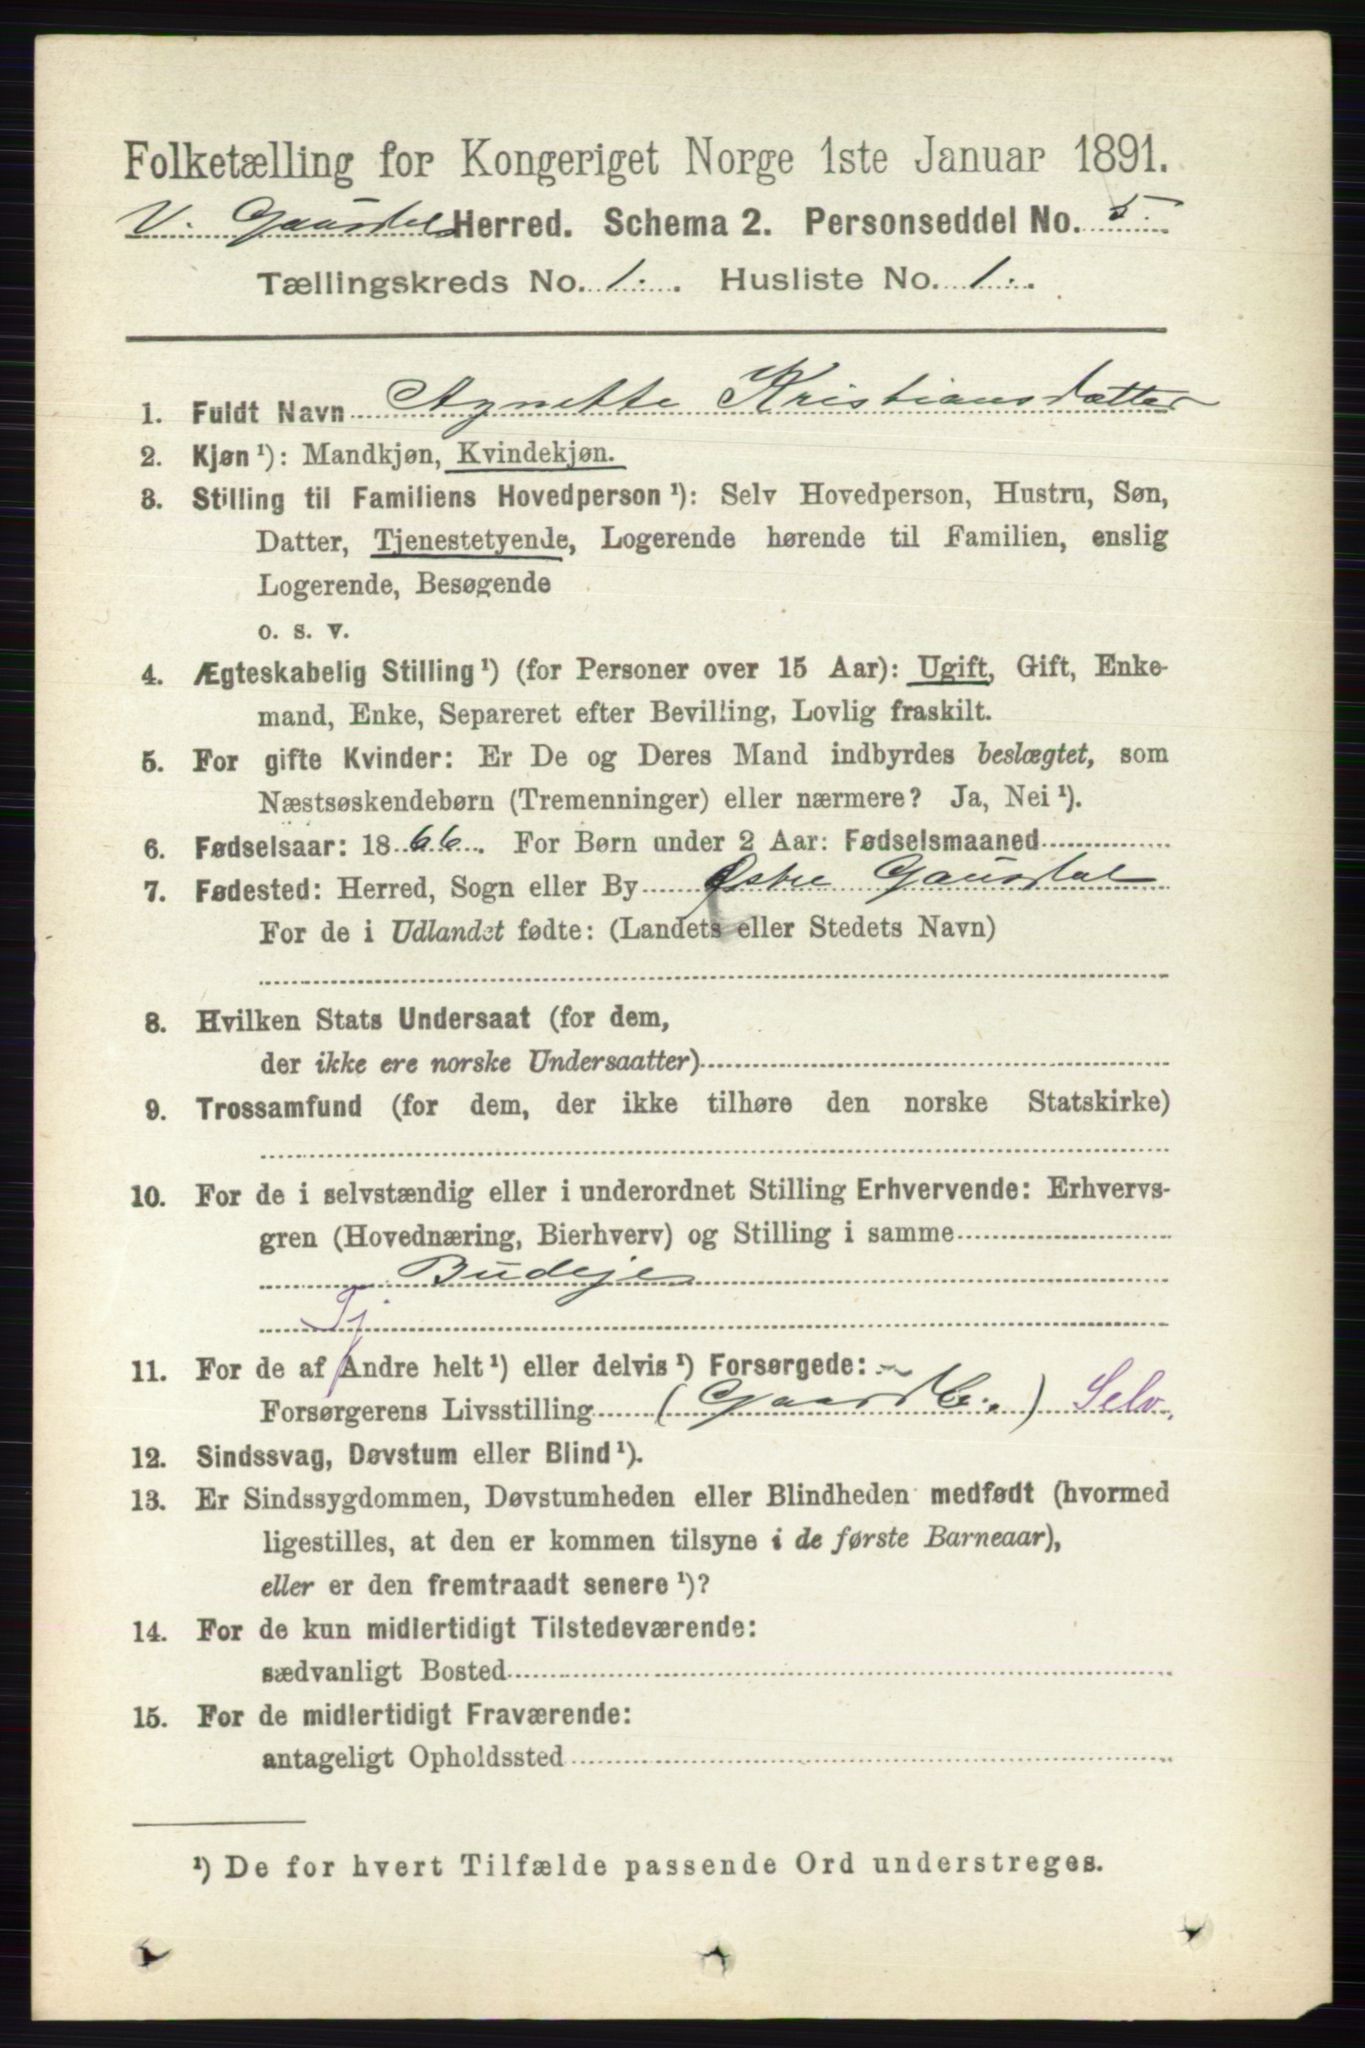 Folketælling for Kongeriget Norge 1ste Januar 1891.
V. Gausdal Herred. Schema 2. Personseddel No. 5.
Tællingskreds No. 1. Husliste No. 1.
1. Fuldt Navn Agnette Kristiansdatter
2. Kjøn ¹): Mandkjøn, Kvindekjøn.
3. Stilling til Familiens Hovedperson ¹): Selv Hovedperson, Hustru, Søn,
Datter, Tjenestetyende, Logerende hørende til Familien, enslig
Logerende, Besøgende
o. s. v.
4. Ægteskabelig Stilling ¹) (for Personer over 15 Aar): Ugift, Gift, Enke-
mand, Enke, Separeret efter Bevilling, Lovlig fraskilt.
5. For gifte Kvinder: Er De og Deres Mand indbyrdes beslægtet, som
Næstsøskendebørn (Tremenninger) eller nærmere? Ja, Nei ¹).
6. Fødselsaar: 1866. For Børn under 2 Aar: Fødselsmaaned
7. Fødested: Herred, Sogn eller By Østre Gausdal
For de i Udlandet fødte: (Landets eller Stedets Navn)
8. Hvilken Stats Undersaat (for dem,
der ikke ere norske Undersaatter)
9. Trossamfund (for dem, der ikke tilhøre den norske Statskirke)
10. For de i selvstændig eller i underordnet Stilling Erhvervende: Erhvervs-
gren (Hovednæring, Bierhverv) og Stilling i samme
Budeje
Tj
11. For de af Andre helt ¹) eller delvis ¹) Forsørgede:
Forsørgerens Livsstilling (Gaardbr.) Selv.
12. Sindssvag, Døvstum eller Blind ¹).
13. Er Sindssygdommen, Døvstumheden eller Blindheden medfødt (hvormed
ligestilles, at den er kommen tilsyne i de første Barneaar),
eller er den fremtraadt senere ¹)?
14. For de kun midlertidigt Tilstedeværende:
sædvanligt Bosted
15. For de midlertidigt Fraværende:
antageligt Opholdssted
¹) De for hvert Tilfælde passende Ord understreges.